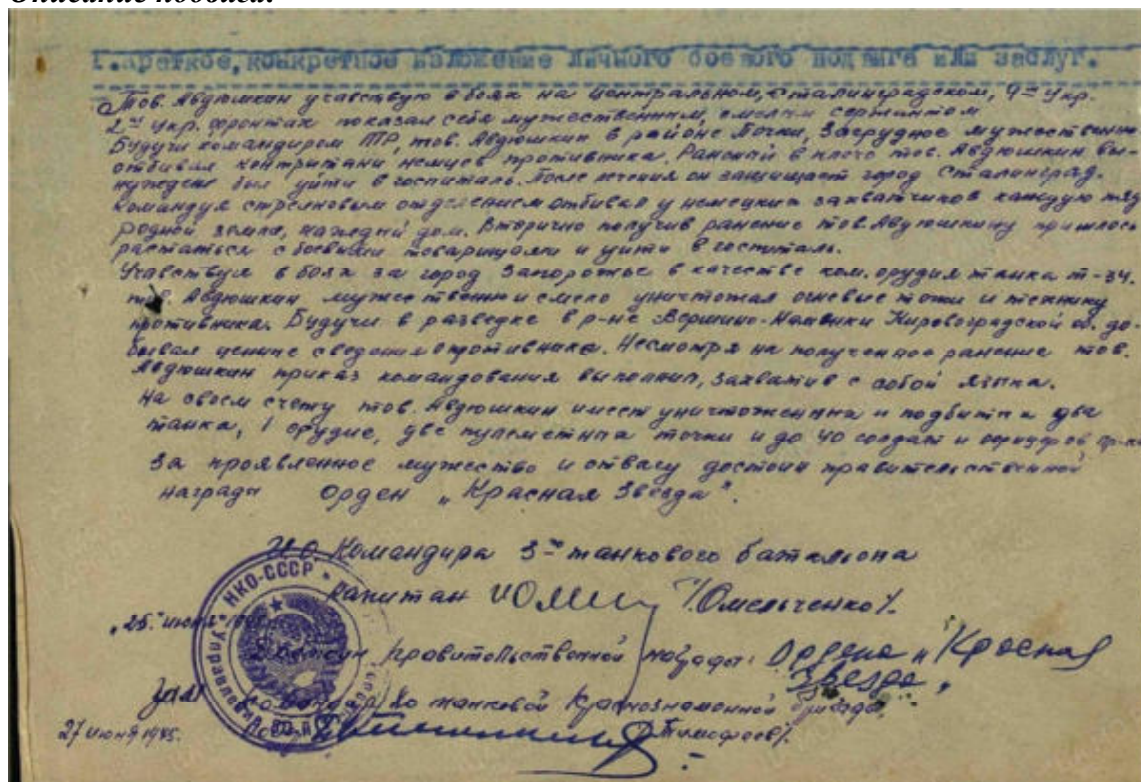 Описание подвига:
I. Краткое, конкретное изложение личного боевого подвига или заслуг.
Тов. Авдюшкин участвую в боях на Центральном, Сталинградском, 4м Укр.
2м Укр. фронтах показал себя мужественным, смелым сержантом.
Будучи командиром ПТР, тов. Авдюшкин в районе мужественно
отбивал контратаки немцев противника. Раненый в плечо тов. Авдюшкин вы-
нужден был уйти в госпиталь. После лечения он защищает город Сталинград.
Командуя стрелковым отделением отбивал у немецких захватчиков каждую пядь
родной земли, каждый дом. Вторично получив ранение тов. Авдюшкину пришлось
растаться с боевыми товарищами и уйти в госпиталь.
Участвуя в боях за город Запорожье в качестве ком. орудия танка Т-34.
тов. Авдюшкин мужественно и смело уничтожал огневые точки и технику
противника. Будучи в разведке в р-не Кировоградской об. до-
бывал ценные сведения о противнике. Несмотря на полученное ранение тов.
Авдюшкин приказ командования выполнил, захватив с собой языка.
На своем счету тов. Авдюшкин имеет уничтоженных и подбитых два
танка, 1 орудие, две пулеметных точки и до 40 солдат и офицеров пр-ка
За проявленное мужество и отвагу достоин правительственной
награды орден „Красная Звезда".
И.О. Командира 3го танкового батальона
капитан /Омельченко/.
„25" июня 1945
Достоин правительственной награды: Ордена „Красная
Звезда"
Командир танковой Краснознаменной бригады
27 июня 1945. /Тимофеев/.
НКО-СССР